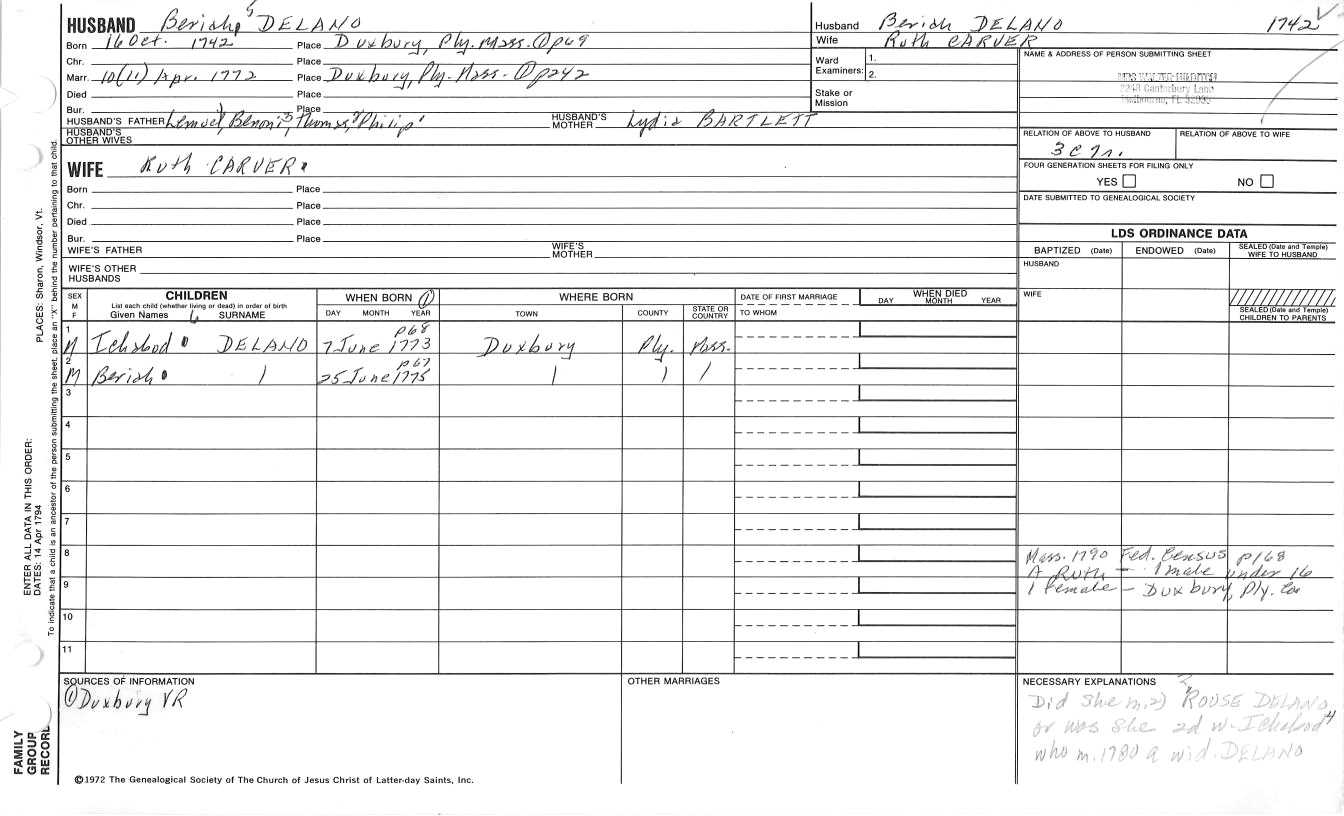 HUSBAND Beriah 5 DELANO
Born 16 Oct. 1742 Place Duxbury, Ply. Mass. ① p69
Chr. Place
Marr. 10(11) Apr. 1772 Place Duxbury, Ply. Mass. ① p242
Died Place
Bur. Place
HUSBAND'S FATHER Lemuel, Benoni, 3 Thomas, 2 Philip 1 HUSBAND'S MOTHER Lydia BARTLETT
HUSBAND'S OTHER WIVES
WIFE Ruth CARVER
Born Place
Chr. Place
Died Place
Bur. Place
WIFE'S FATHER WIFE'S MOTHER
WIFE'S OTHER HUSBANDS
Husband Beriah DELANO 1742
Wife Ruth CARVER
Ward Examiners: 1.
2.
Stake or Mission
NAME & ADDRESS OF PERSON SUBMITTING SHEET
Canterbury Lane
RELATION OF ABOVE TO HUSBAND RELATION OF ABOVE TO WIFE
3 C 7r.
FOUR GENERATION SHEETS FOR FILING ONLY
YES NO
DATE SUBMITTED TO GENEALOGICAL SOCIETY
LDS ORDINANCE DATA
BAPTIZED (Date) ENDOWED (Date) SEALED (Date and Temple) WIFE TO HUSBAND
HUSBAND
WIFE
SEALED (Date and Temple) CHILDREN TO PARENTS
SEX M F
CHILDREN
List each child (whether living or dead) in order of birth
Given Names 6 SURNAME
WHEN BORN ①
DAY MONTH YEAR
WHERE BORN
TOWN COUNTY STATE OR COUNTRY
DATE OF FIRST MARRIAGE
TO WHOM
WHEN DIED
DAY MONTH YEAR
p68
1 M Ichabod DELANO 7 June 1773 Duxbury Ply. Mass.
p67
2 M Beriah 25 June 1775
3
4
5
6
7
8
9
10
11
Mass. 1790 Fed. Census p168
A Ruth – 1 male under 16
1 Female – Duxbury, Ply. Co
SOURCES OF INFORMATION
① Duxbury VR
OTHER MARRIAGES
NECESSARY EXPLANATIONS
Did she m. 2) ROUSE DELANO
or was she 2d w. Ichabod 4
who m. 1780 a wid. DELANO
©1972 The Genealogical Society of The Church of Jesus Christ of Latter-day Saints, Inc.
FAMILY GROUP RECORD
ENTER ALL DATA IN THIS ORDER:
DATES: 14 Apr 1794
PLACES: Sharon, Windsor, Vt.
To indicate that a child is an ancestor of the person submitting the sheet, place an "X" behind the number pertaining to that child.